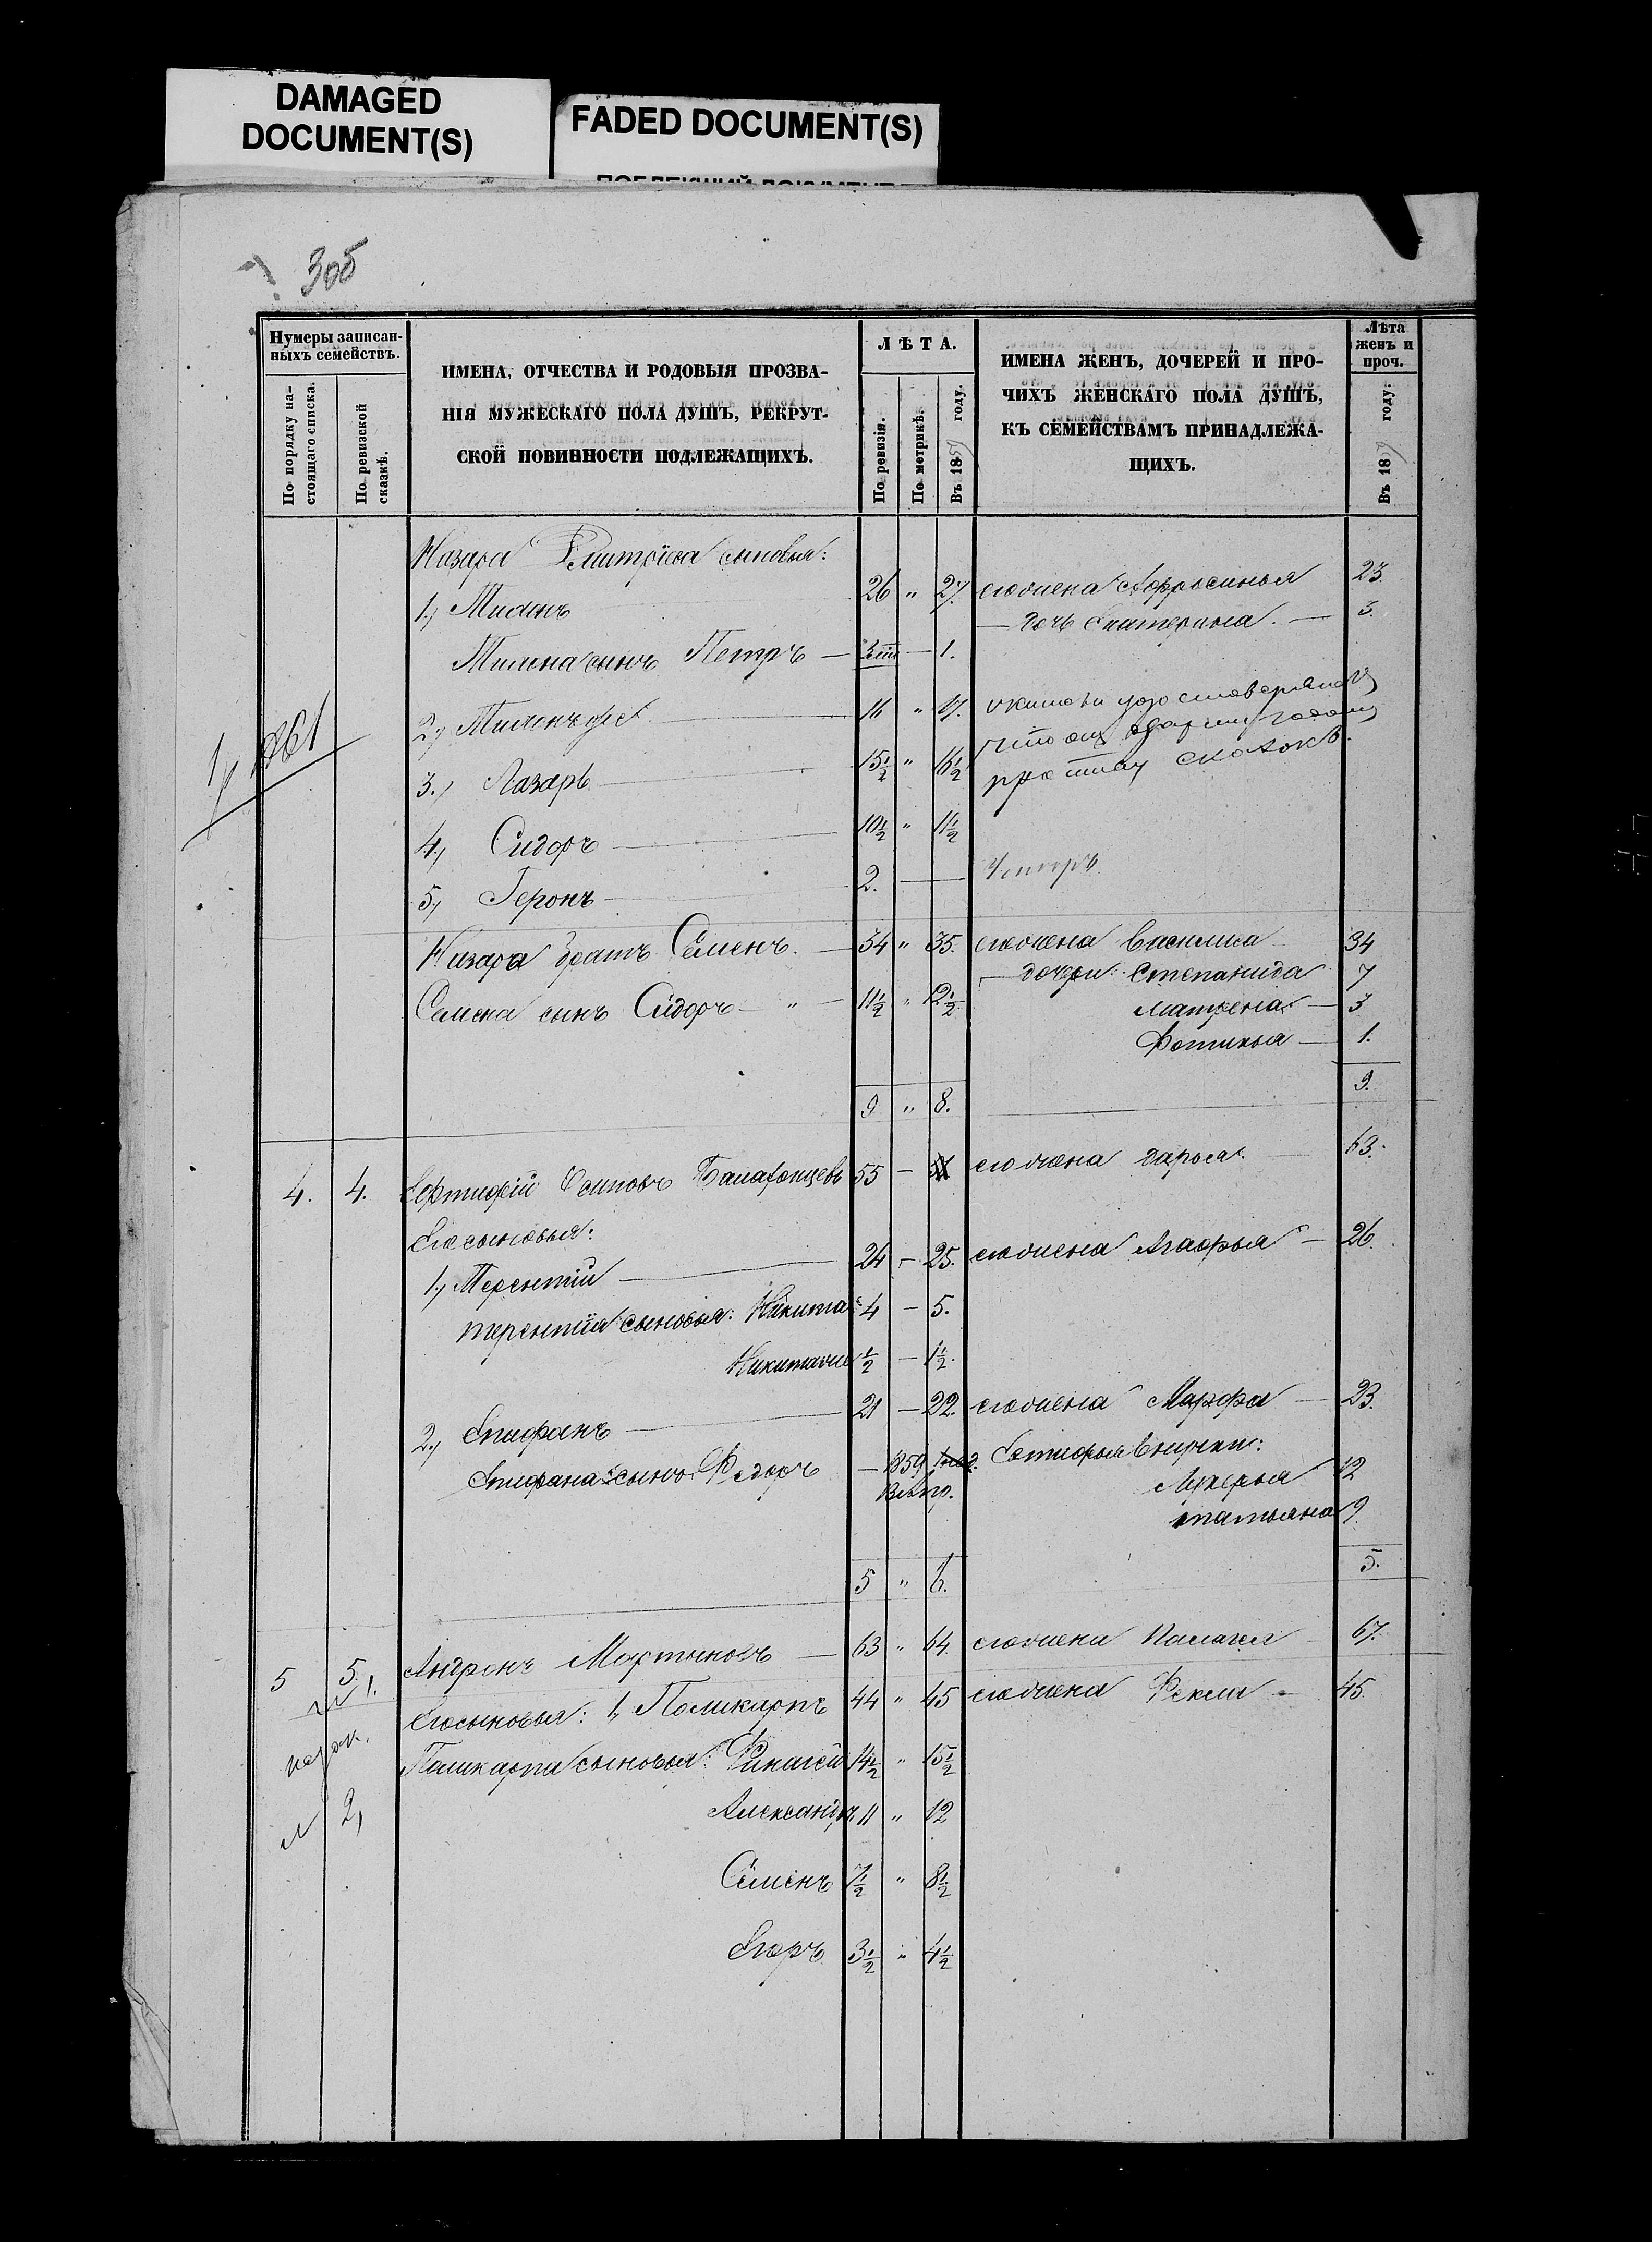 DAMAGED
DOCUMENT(S)
FADED DOCUMENT(S)
305
Нумеры записан-
ныхъ семействъ.
По порядку на-
стоящаго списка.
По ревизской
сказкѣ.
ИМЕНА, ОТЧЕСТВА И РОДОВЫЯ ПРОЗВА-
НІЯ МУЖЕСКАГО ПОЛА ДУШЪ, РЕКРУТ-
СКОЙ ПОВИННОСТИ ПОДЛЕЖАЩИХЪ.
ЛѢТА.
По ревизіи.
По метрикѣ.
Въ 1859 году.
ИМЕНА ЖЕНЪ, ДОЧЕРЕЙ И ПРО-
ЧИХЪ ЖЕНСКАГО ПОЛА ДУШЪ,
КЪ СЕМЕЙСТВАМЪ ПРИНАДЛЕЖА-
ЩИХЪ.
Лѣта
женъ и
проч.
Въ 1859 году.
Назара Дмитріева сыновья:
1, 26 " 27. его жена Афросинья 23.
— дочь Екатерина. — 3.
сынъ Петръ — — 1.
2,
1861
3, Лазарь 15½ " 16½
4, Сидоръ 10½ " 11½
5, Геронъ 2. —
Назара братъ Семенъ. 34 " 35. его жена Василиса 34
— дочери: Степанида 7
Семена сынъ Сидоръ — " — 11½ " 12½ Матрена — 3
Фотинья — 1.
9 " 8. 9.
4. 4. Осиповъ 55 — его жена Дарья 63.
Его сыновья:
1, Терентій 24 — 25. его жена Агафья — 26
Терентія сыновья: Никита 4 — 5.
Никита же ½ — 1½.
2, Епифанъ 21 — 22. его жена Марфа — 23.
Епифана сынъ Федоръ — 1859 внучки:
Лукерья 12
Татьяна 9.
5 " 6. 5.
5 5. Андронъ Мартыновъ — 63 " 64 его жена Палагея 67.
Его сыновья: 1, Поликарпъ 44 " 45 его жена Фекла — 45.
Поликарпа сыновья: 14½ " 15½
2, Александръ 11 " 12
Семенъ 7½ " 8½
Егоръ 3½ " 4½